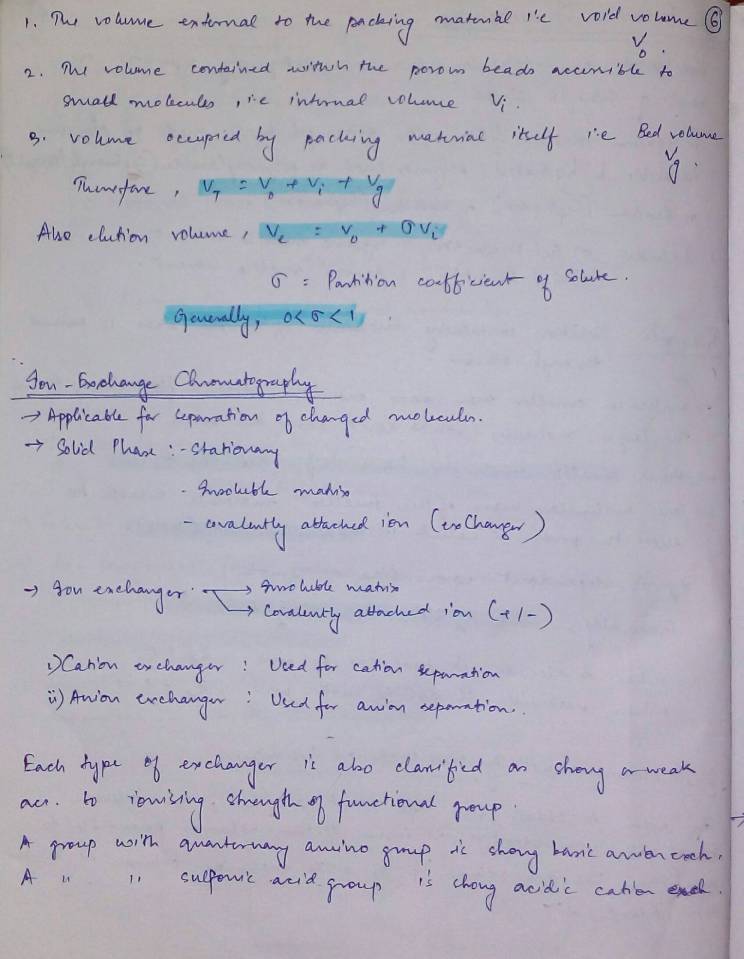 1. The volume external to the packing material i.e void volume V₀. ⑥
2. The volume contained within the porous beads accessible to
small molecules, i.e internal volume Vi.
3. volume occupied by packing material itself i.e Bed volume Vg.
Therefore, V_T = V₀ + Vi + Vg
Also elution volume, Ve = V₀ + σVi
σ = Partition coefficient of solute.
Generally, 0<σ<1.
Ion-Exchange Chromatography
→ Applicable for separation of charged molecules.
→ Solid Phase :- Stationary
- Insoluble matrix
- covalently attached ion (exchanger)
→ Ion exchanger. → Insoluble matrix
→ Covalently attached ion (+/-)
i) Cation exchanger : Used for cation separation
ii) Anion exchanger : Used for anion separation.
Each type of exchanger is also classified as strong or weak
acc. to ionising strength of functional group.
A group with quarternary amino group is strong basic anion exch.
A " " sulfonic acid group is strong acidic cation exch.